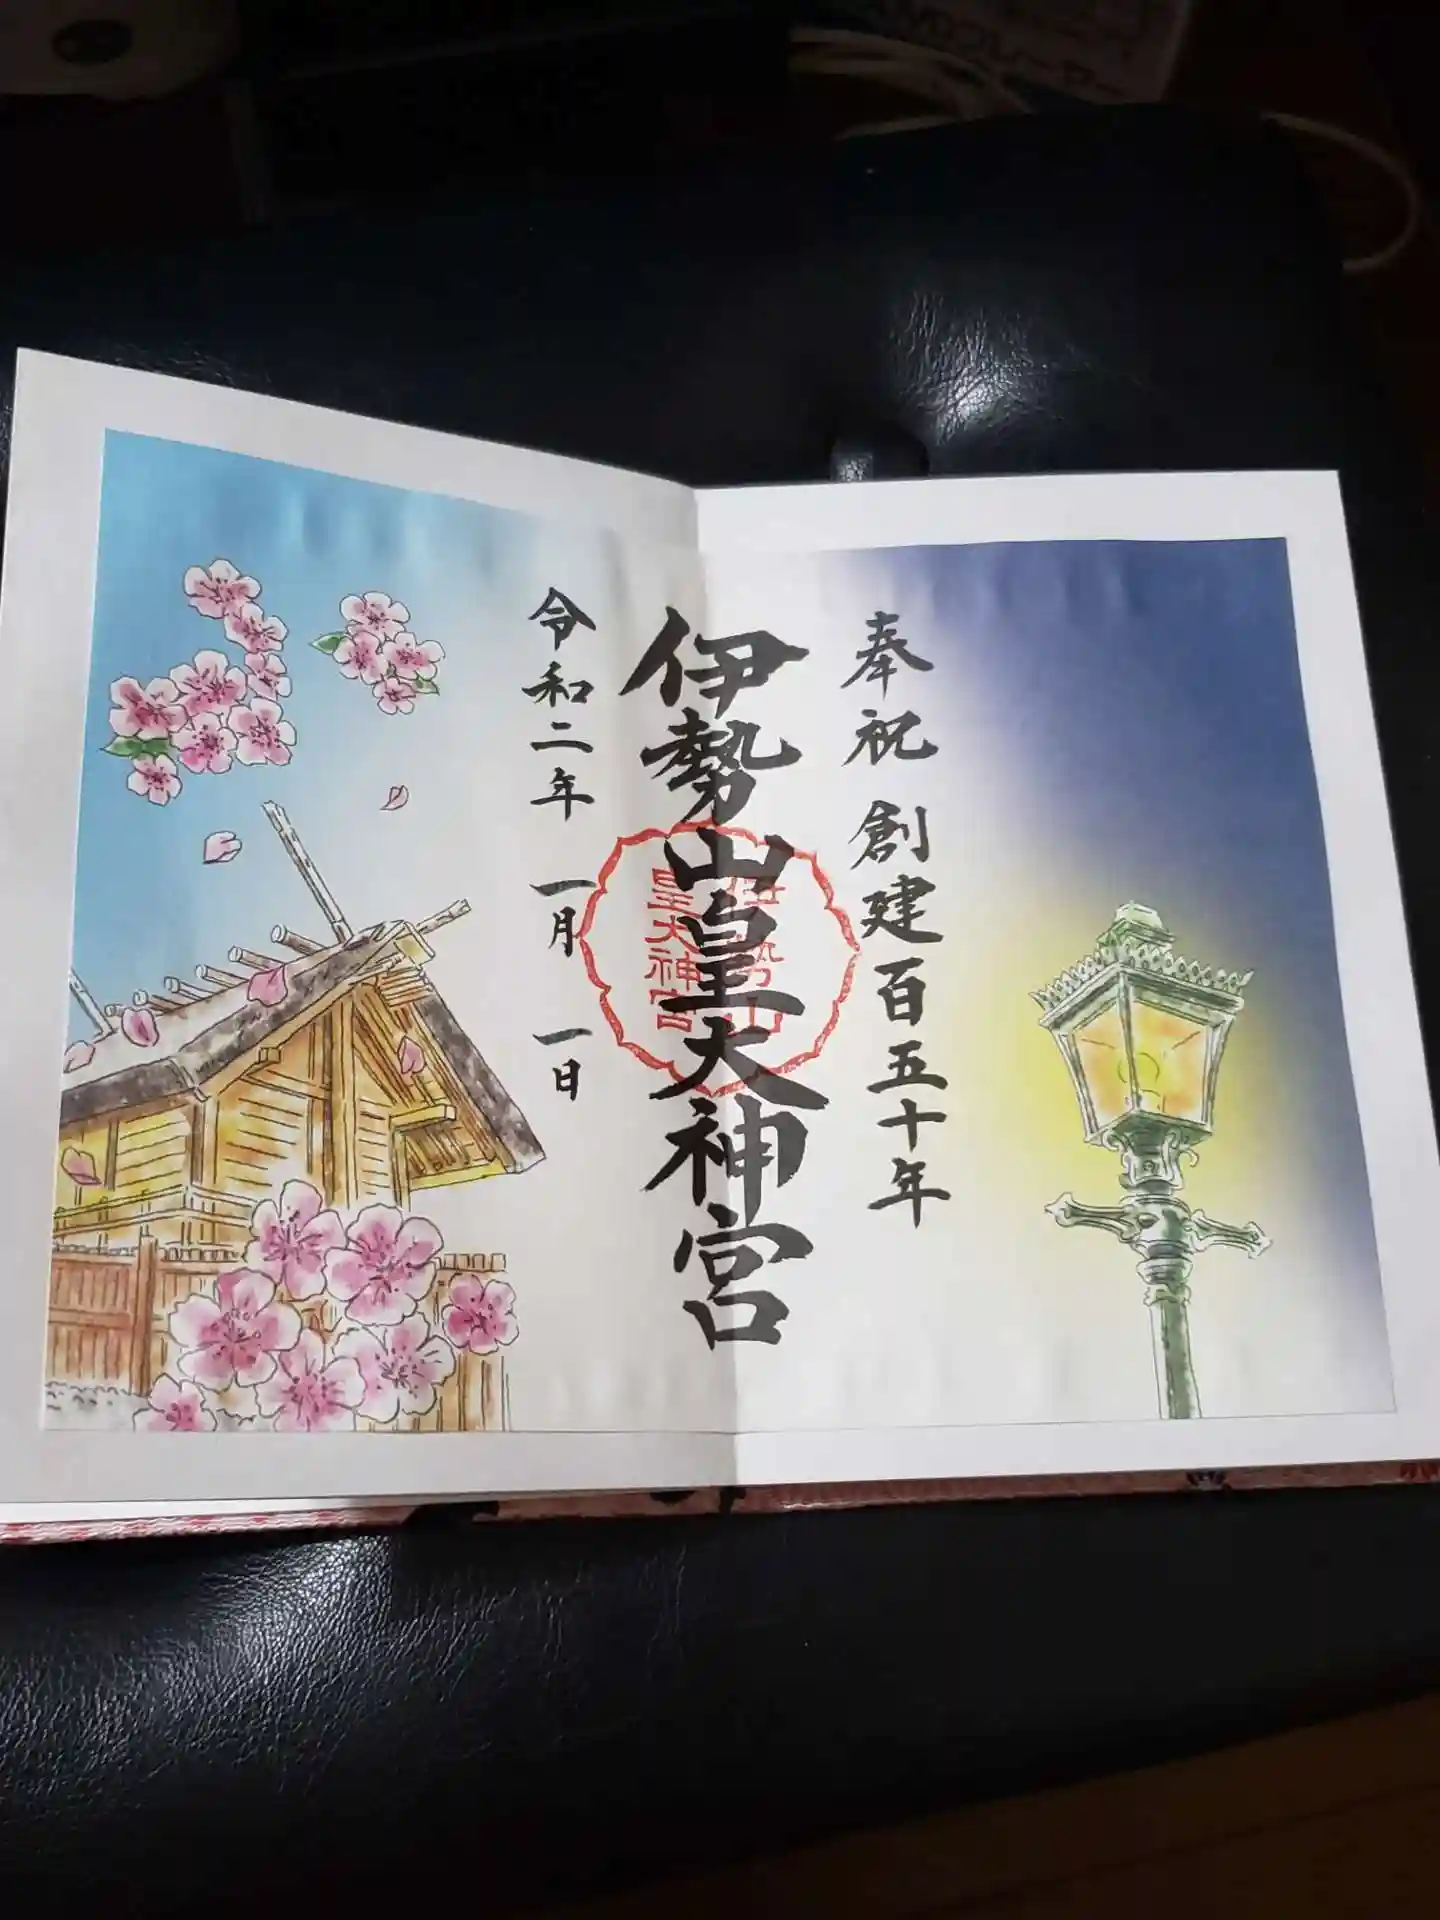 奉祝 創建百五十年
伊勢山皇大神宮
伊勢山
皇大神宮
令和二年 一月 一日